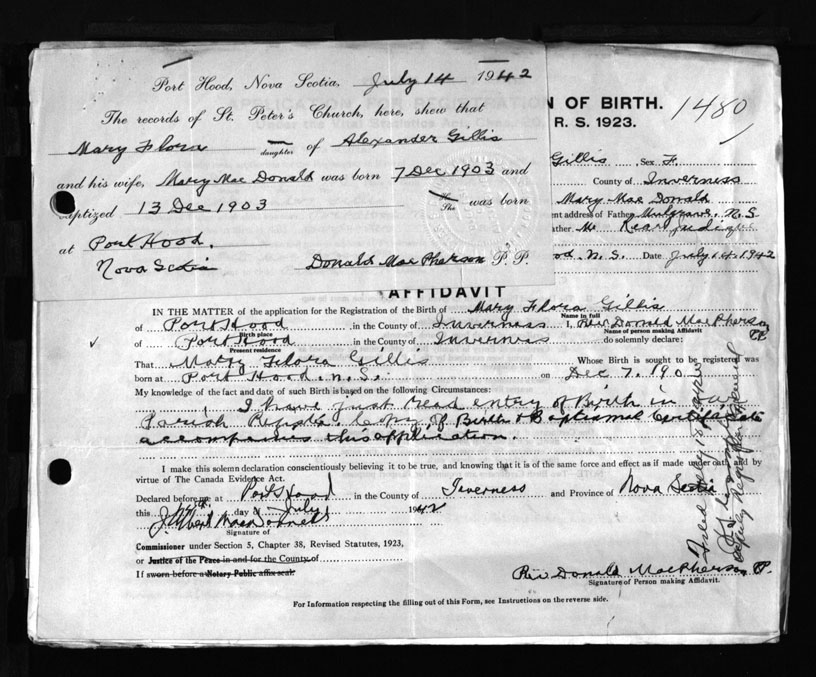 Port Hood, Nova Scotia, July 14 1942
The records of St. Peter's Church, here, shew that
Mary Flora daughter of Alexander Gillis
and his wife, Mary Mac Donald was born 7 Dec 1903 and
baptized 13 Dec 1903 She was born
at Port Hood.
Nova Scotia Donald MacPherson P.P.
N OF BIRTH.
R. S. 1923.
1480
Gillis Sex F.
County of Inverness
Mary Mac Donald
nt address of Father Mulgrave, N.S.
ather
od. N.S. Date July 14. 1942
AFFIDAVIT
IN THE MATTER of the application for the Registration of the Birth of Mary Flora Gillis
Name in full
of Port Hood in the County of Inverness I, Rev Donald MacPherson PP
Birth place Name of person making Affidavit
of Port Hood in the County of Inverness do solemnly declare:
Present residence
That Mary Flora Gillis Whose Birth is sought to be registered was
born at Port Hood. N.S. on Dec 7. 190
My knowledge of the fact and date of such Birth is based on the following Circumstances:
I have just read entry of Birth in our
Parish Register. Copy of Birth & Baptismal Certificate
accompanies this application.
I make this solemn declaration conscientiously believing it to be true, and knowing that it is of the same force and effect as if made under oath and by
virtue of The Canada Evidence Act.
Declared before me at Port Hood in the County of Inverness and Province of Nova Scotia
this day of July 1942
Signature of
Commissioner under Section 5, Chapter 38, Revised Statutes, 1923,
or Justice of the Peace in and for the County of
If sworn before a Notary Public affix seal
Rev Donald MacPherson PP.
Signature of Person making Affidavit.
For Information respecting the filling out of this Form, see Instructions on the reverse side.
Filed July
Deputy Registrar